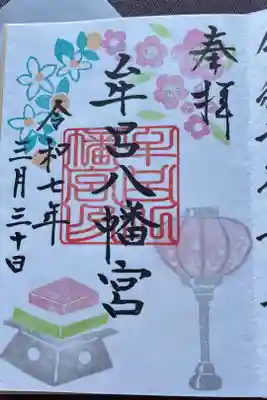 奉拝
牟呂八幡宮
令和七年
三月三十日